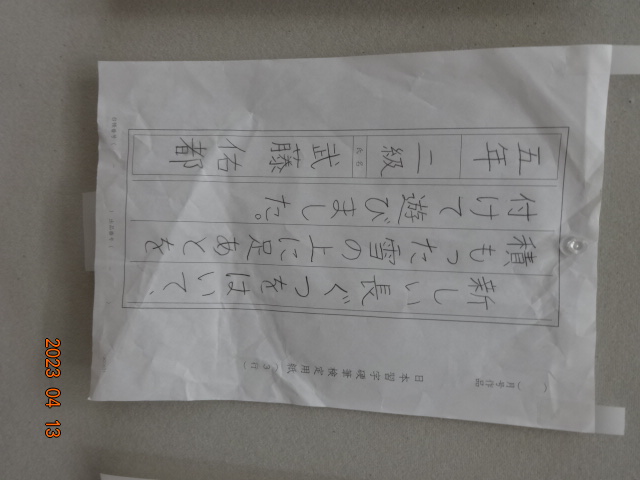 日本習字硬筆検定用紙(3行)
月号作品
新しい長ぐつをはいて、
積もった雪の上に足あとを
付けて遊びました。
五年
二級
氏名
武藤佑都
2023 04 13